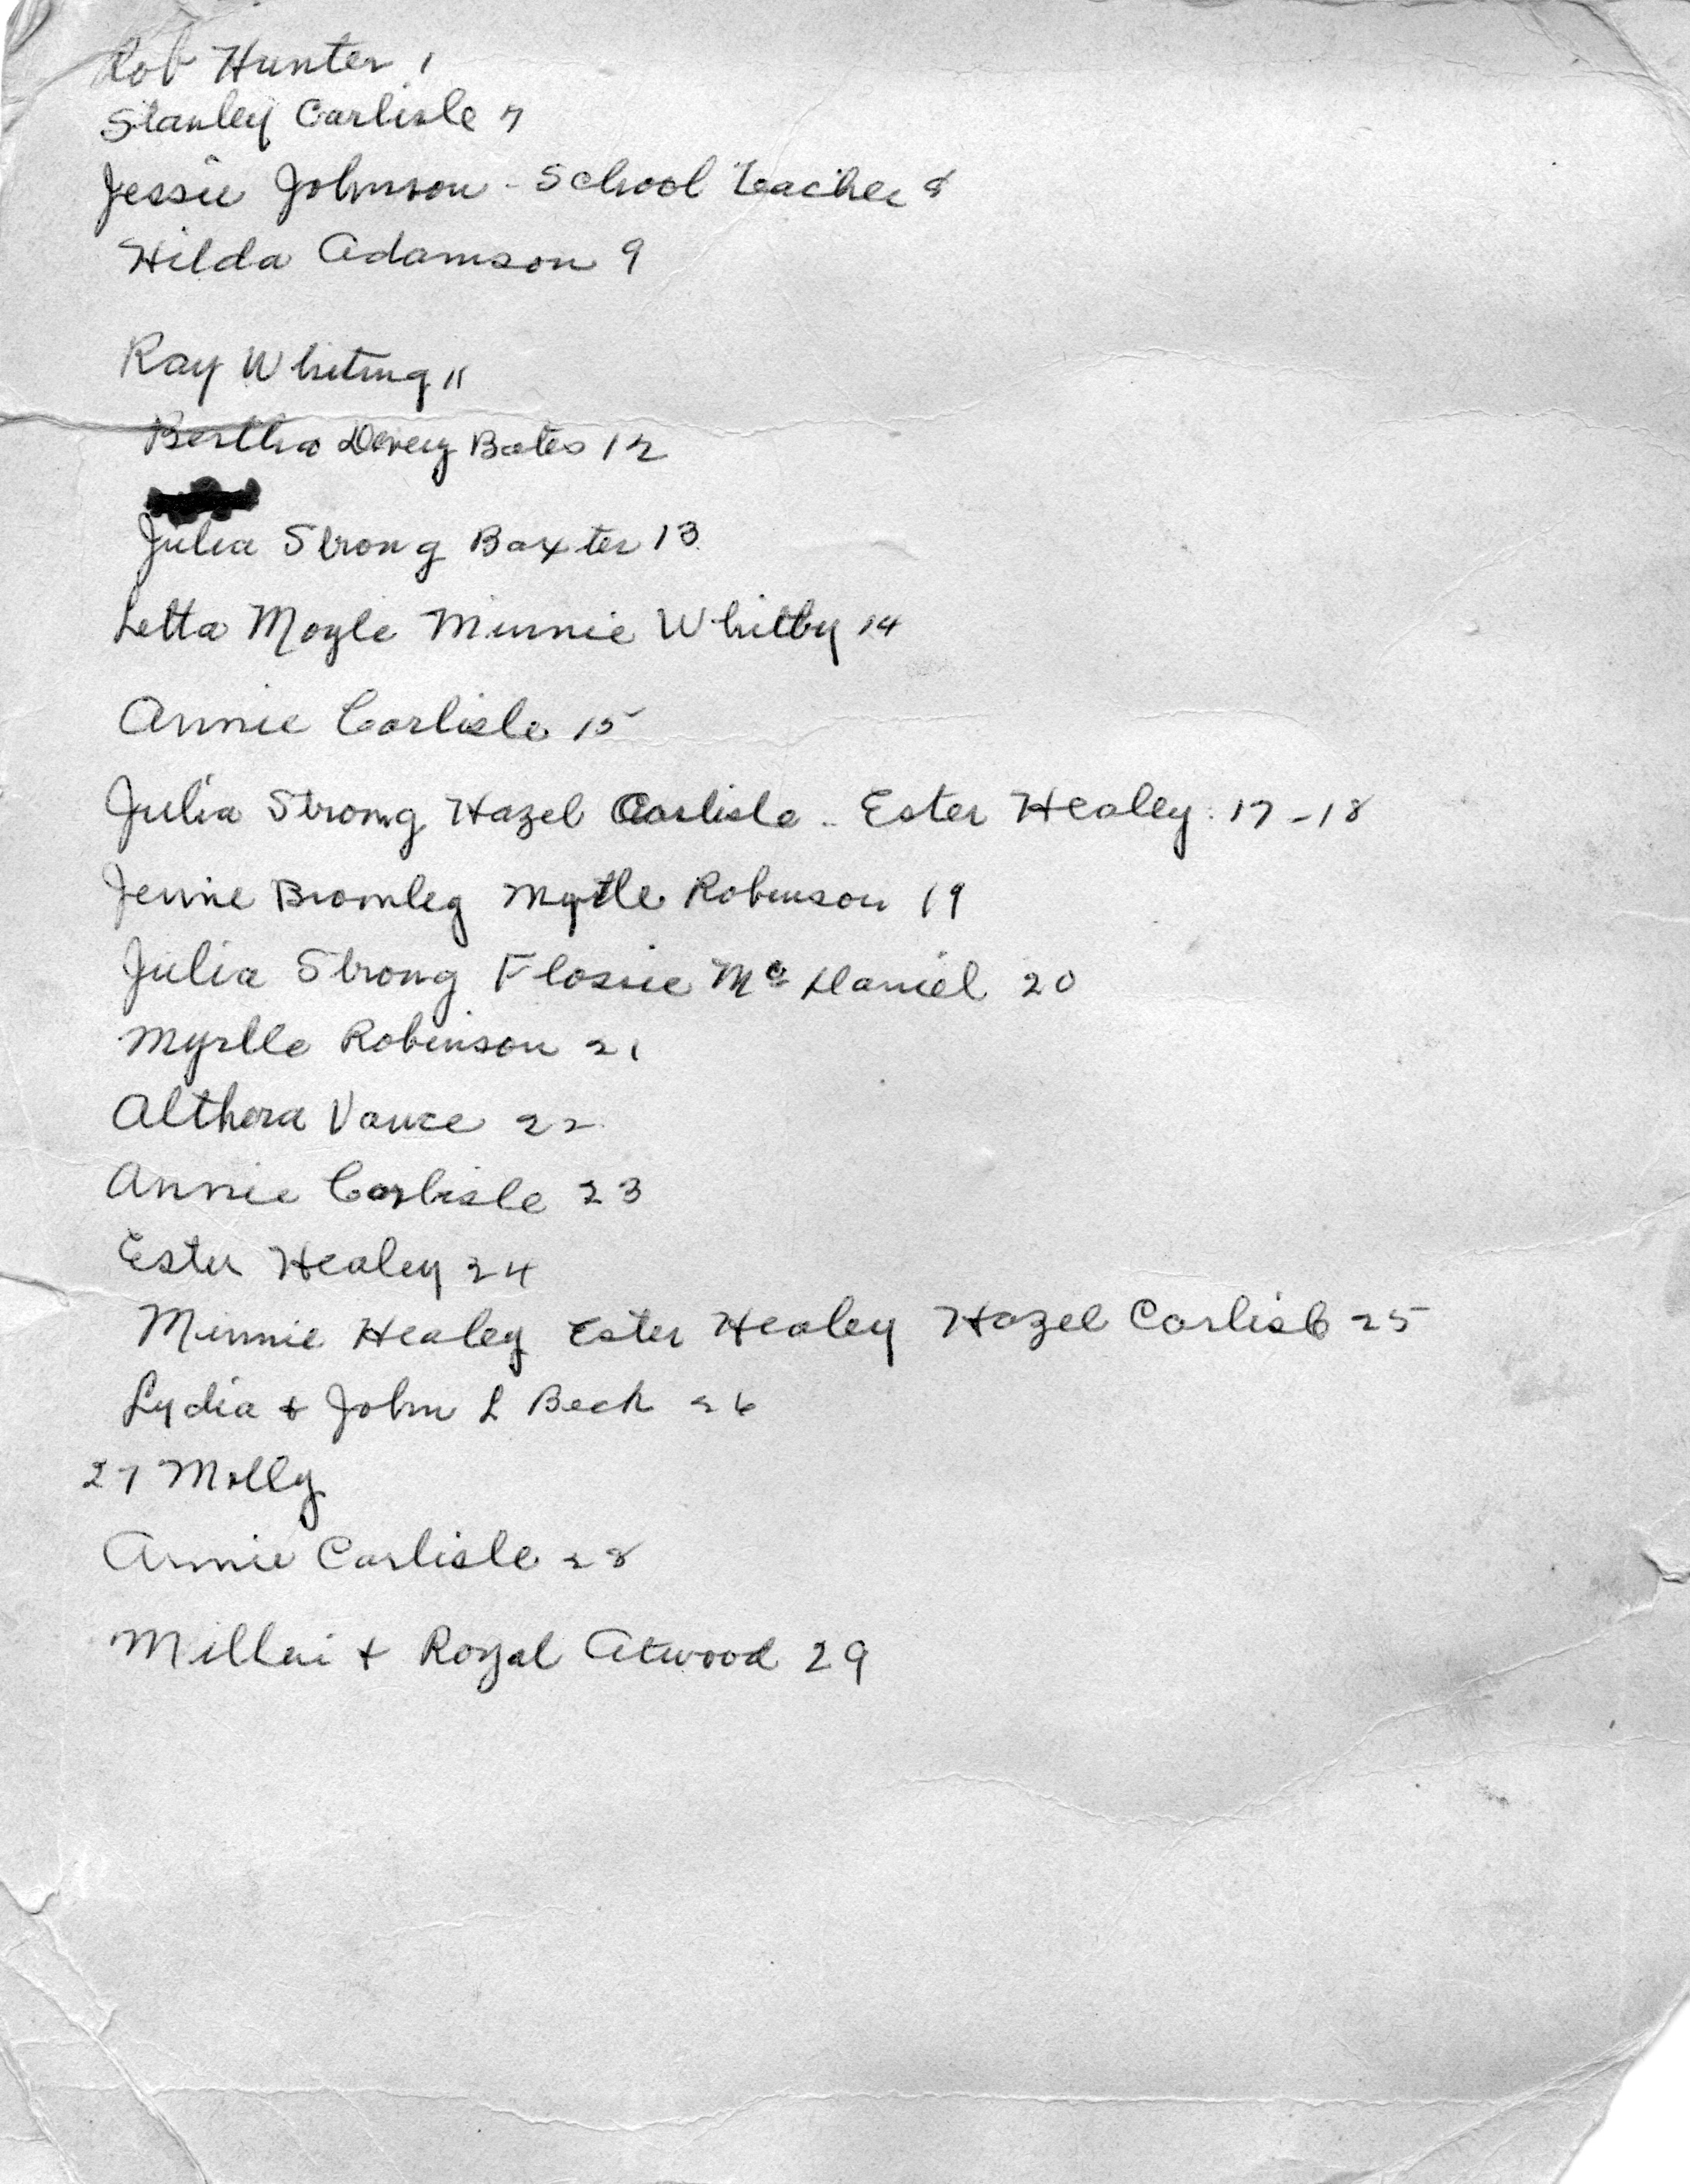 Rob Hunter 1
Stanley Carlisle 7
Jessie Johnson - School Teacher 8
Hilda Adamson 9
Ray Whiting 11
Bertha Bates 12
Julia Strong Baxter 13
Letta Moyle Minnie Whitby 14
Annie Carlisle 15
Julia Strong Hazel Carlisle - Ester Healey. 17-18
Jennie Bromley Myrtle Robinson 19
Julia Strong Flossie Mc Daniel 20
Myrtle Robinson 21
Althera Vance 22
Annie Carlisle 23
Ester Healey 24
Minnie Healey Ester Healey Hazel Carlisle 25
Lydia + John L Beck 26
27 Molly
Annie Carlisle 28
+ Royal Atwood 29